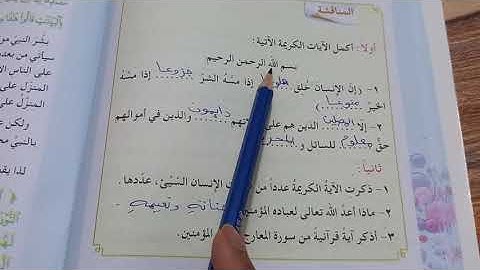 المناقشة
أولا: أكمل الآيات الكريمة الآتية:
بسم الله الرحمن الرحيم
١- (إنّ الإنسان خُلِق هلوعا إذا مسّهُ الشرّ جزوعا إذا مسّهُ
الخير منوعا)
٢- إلا المصلين الذين هم على دائمون والذين في أموالهم
حقٌّ معلوم للسائل و
ثانياً:
١- ذكرت الآيةُ الكريمة عدداً من الإنسان السَّيِّئ، عدّدها.
٢- ماذا أعدَّ الله تعالى لعباده المؤمنين
٣- أذكر آيةً قرآنيةً من سورة المعارج المؤمنين.
بشّر النبي
سيأتي من بعده
على الناس
المنزل على
المنزل
ولكن
بالنبي
لذا